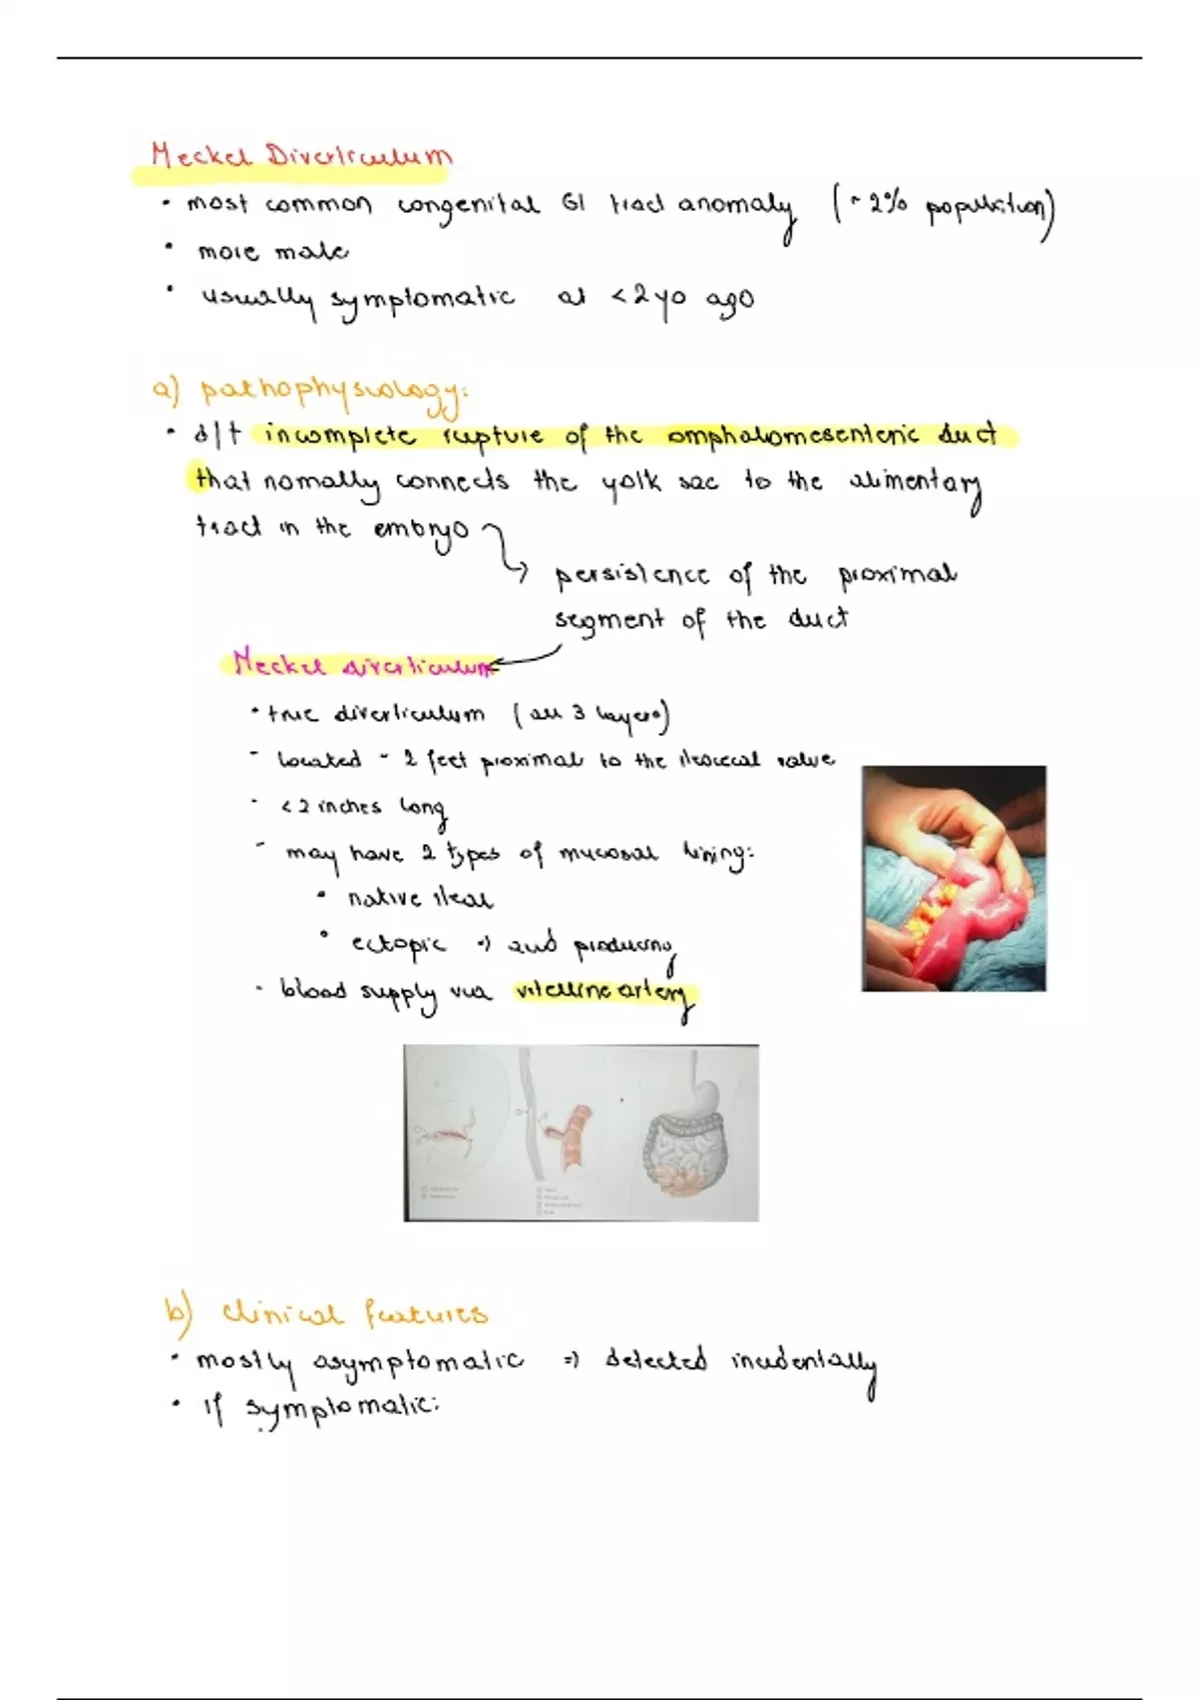 Meckel Diverticulum
• most common congenital GI tract anomaly (~2% population)
• more male
• usually symptomatic at <2yo ago
a) pathophysiology:
• d/t incomplete rupture of the omphalomesenteric duct
that nomally connects the yolk sac to the alimentary
tract in the embryo
→ persistence of the proximal
segment of the duct
Meckel diverticulum
• true diverticulum (all 3 layers)
- located ~ 2 feet proximal to the ileocecal valve
- <2 inches long
- may have 2 types of mucosal lining:
• native ileal
• ectopic => acid producing
- blood supply via vitelline artery
b) clinical features
• mostly asymptomatic => detected incidentally
• If symptomatic: